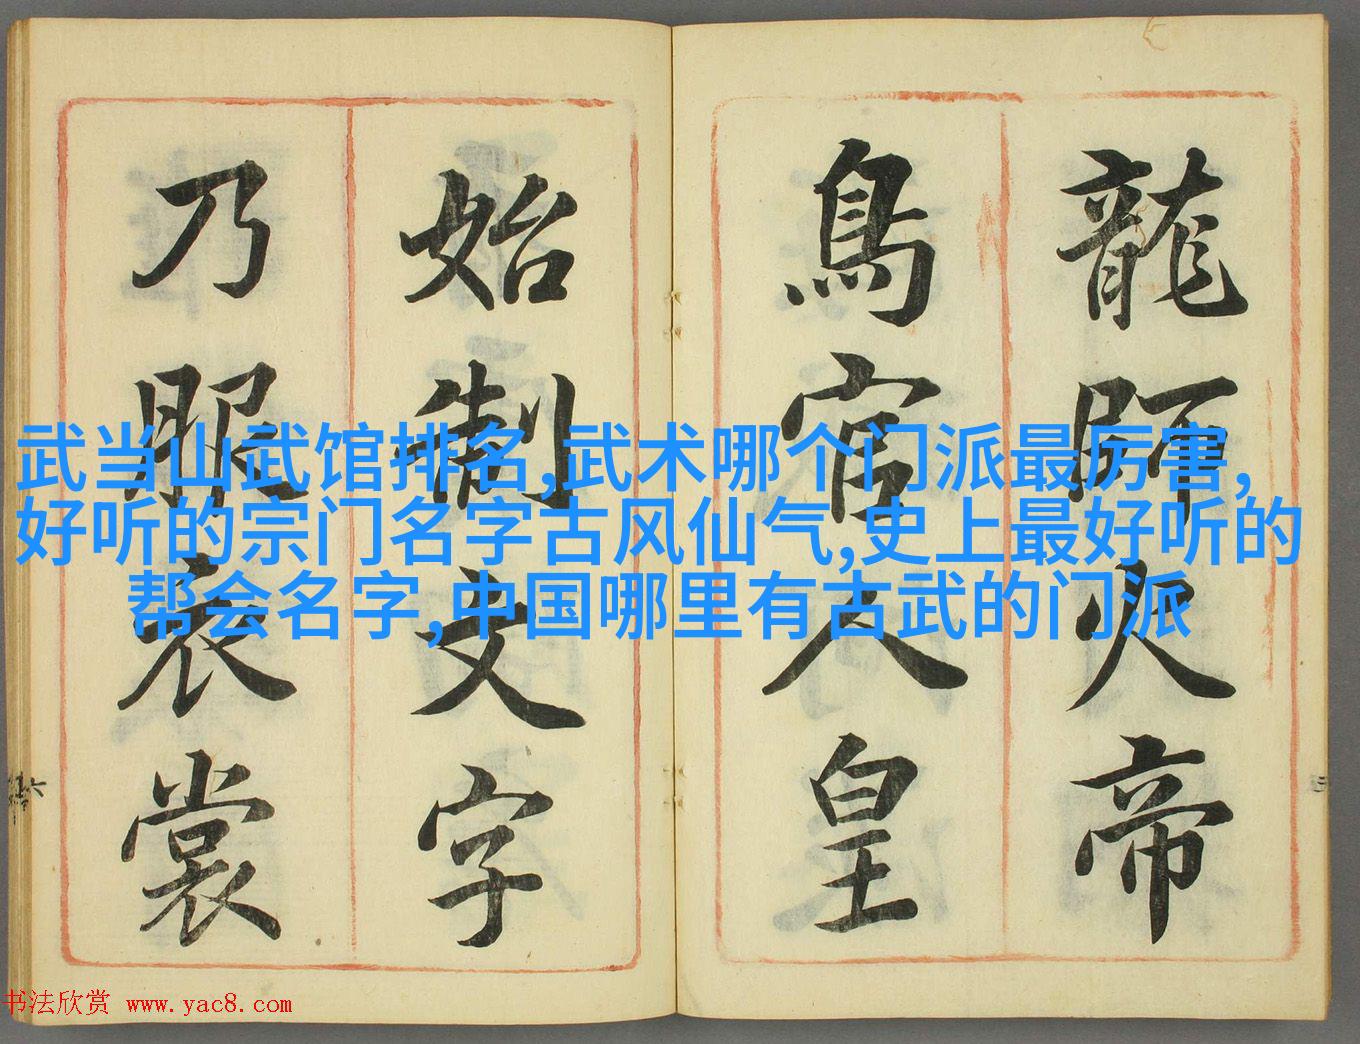 龍師火帝
鳥官人皇
始制文字
乃服衣裳
武当山武馆排名,武术哪个门派最厉害,
好听的宗门名字古风仙气,史上最好听的
帮会名字,中国哪里有古武的门派
书法欣赏 www.yac8.com